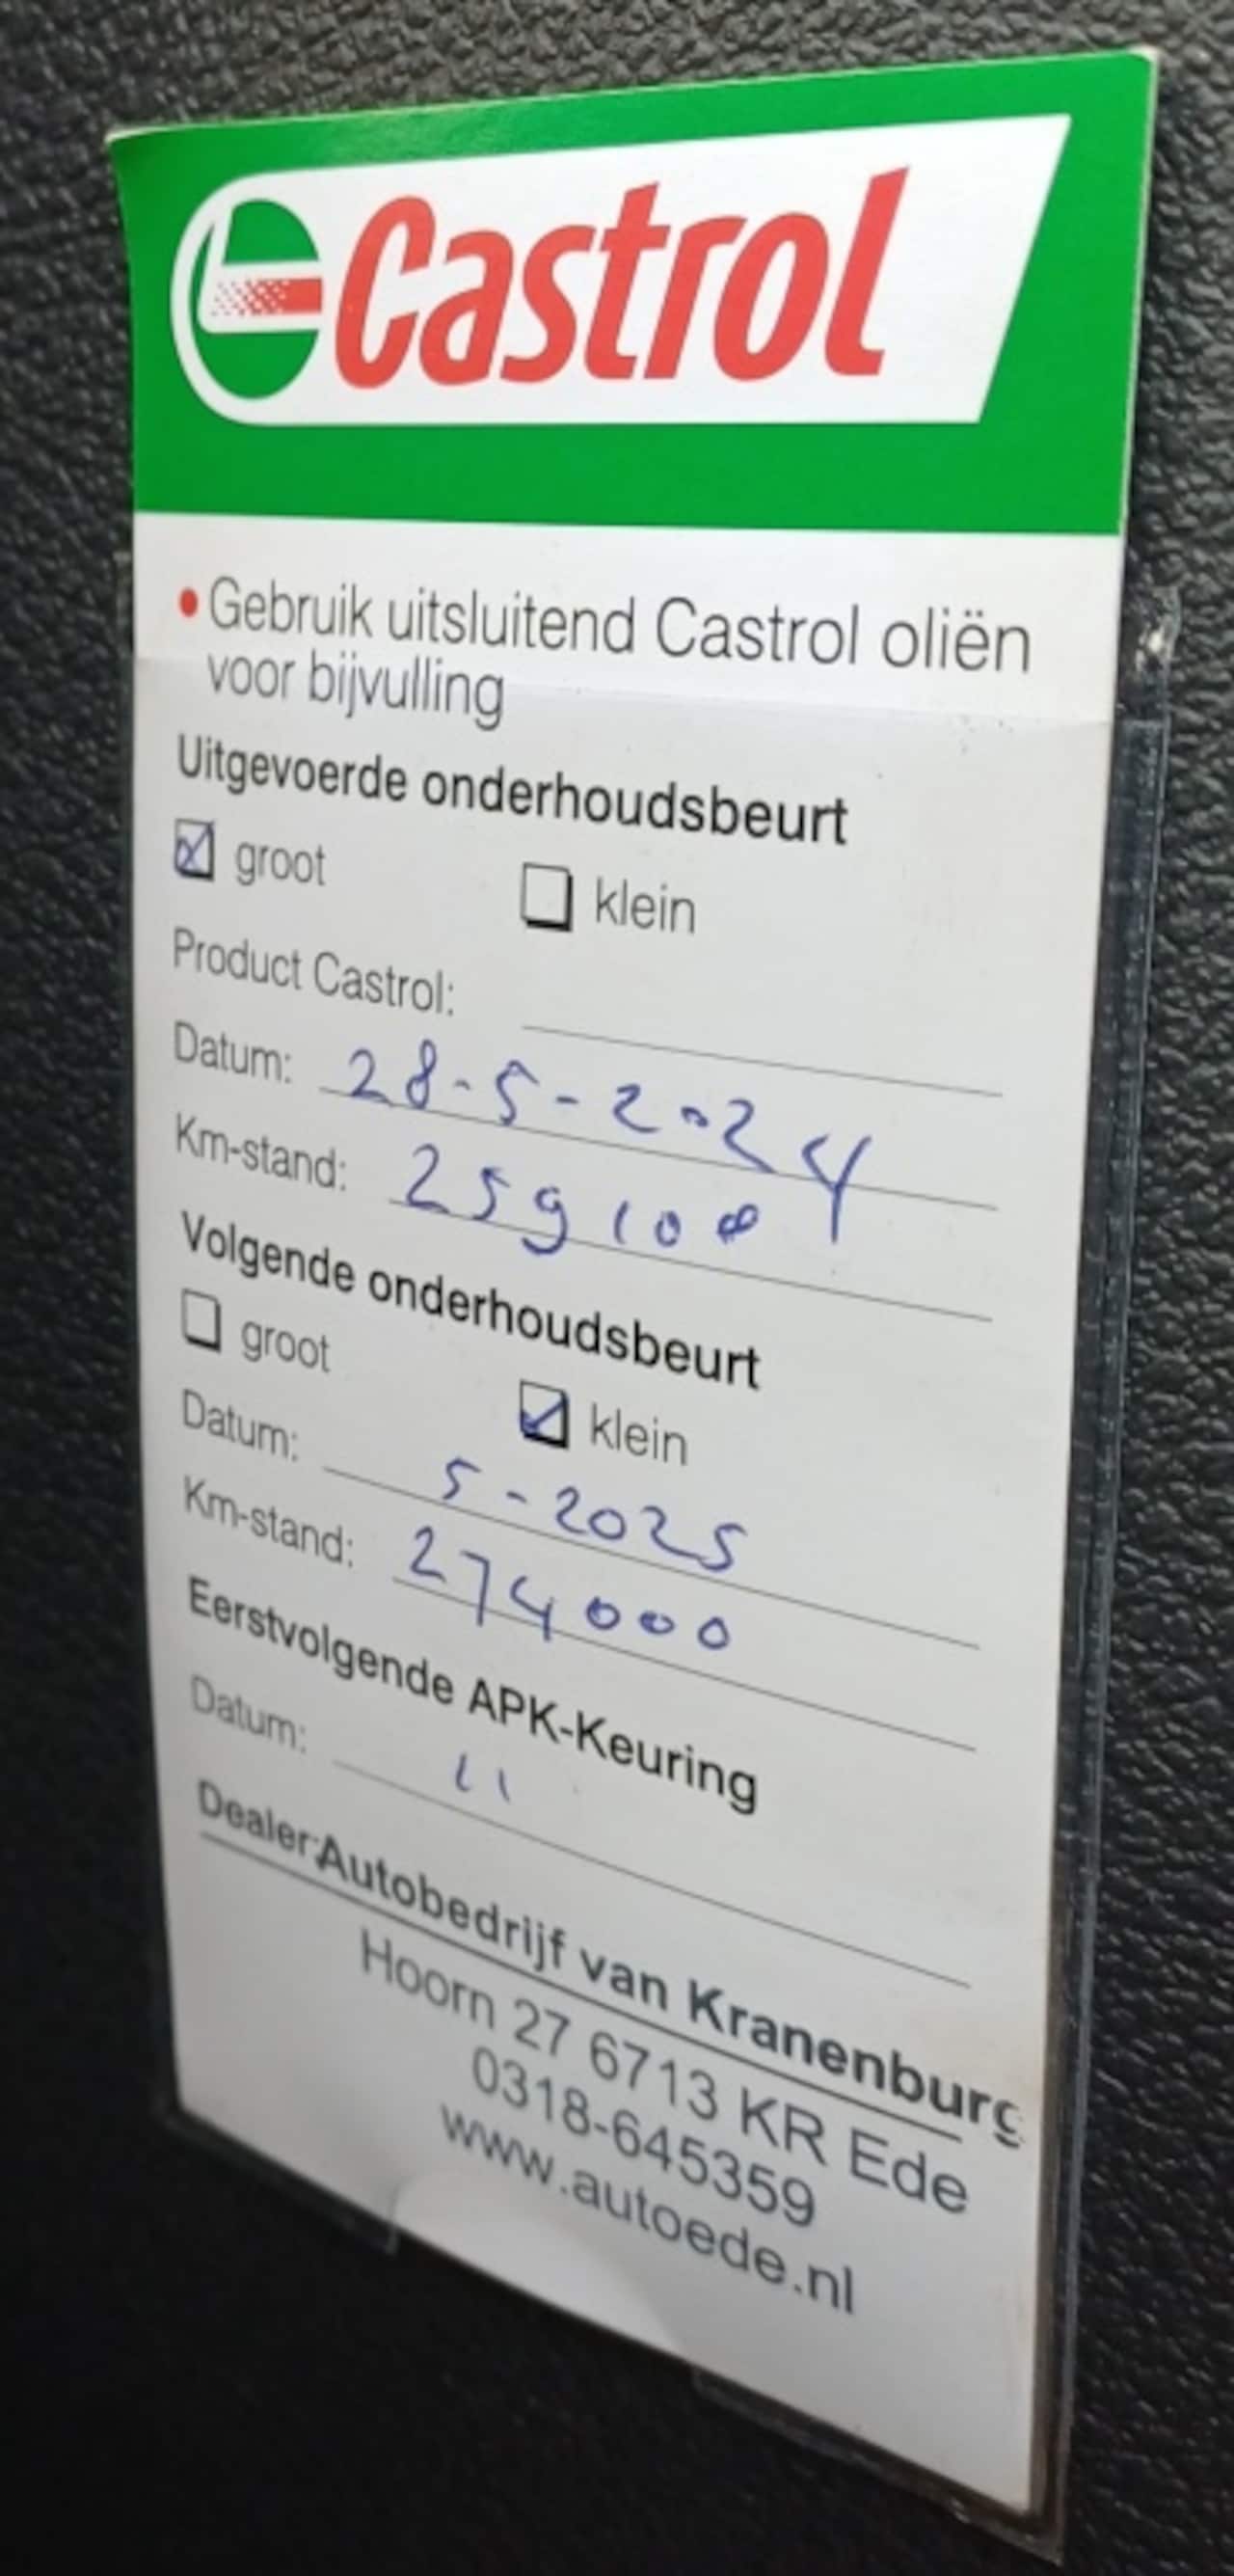 Castrol
• Gebruik uitsluitend Castrol oliën
voor bijvulling
Uitgevoerde onderhoudsbeurt
groot klein
Product Castrol:
Datum: 28-5-2024
Km-stand: 259100
Volgende onderhoudsbeurt
groot klein
Datum: 5-2025
Km-stand: 274000
Eerstvolgende APK-Keuring
Datum: 
Dealer: Autobedrijf van Kranenburg
Hoorn 27 6713 KR Ede
0318-645359
www.autoede.nl